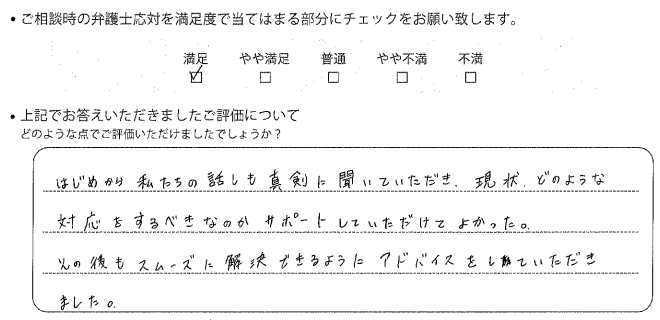 • ご相談時の弁護士応対を満足度で当てはまる部分にチェックをお願い致します。
満足 やや満足 普通 やや不満 不満
☑ □ □ □ □
• 上記でお答えいただきましたご評価について
どのような点でご評価いただけましたでしょうか？
はじめから 私たちの話しも真剣に聞いていただき、現状、どのような
対応をするべきなのか サポートしていただけてよかった。
その後もスムーズに解決できるようにアドバイスをしていただき
ました。